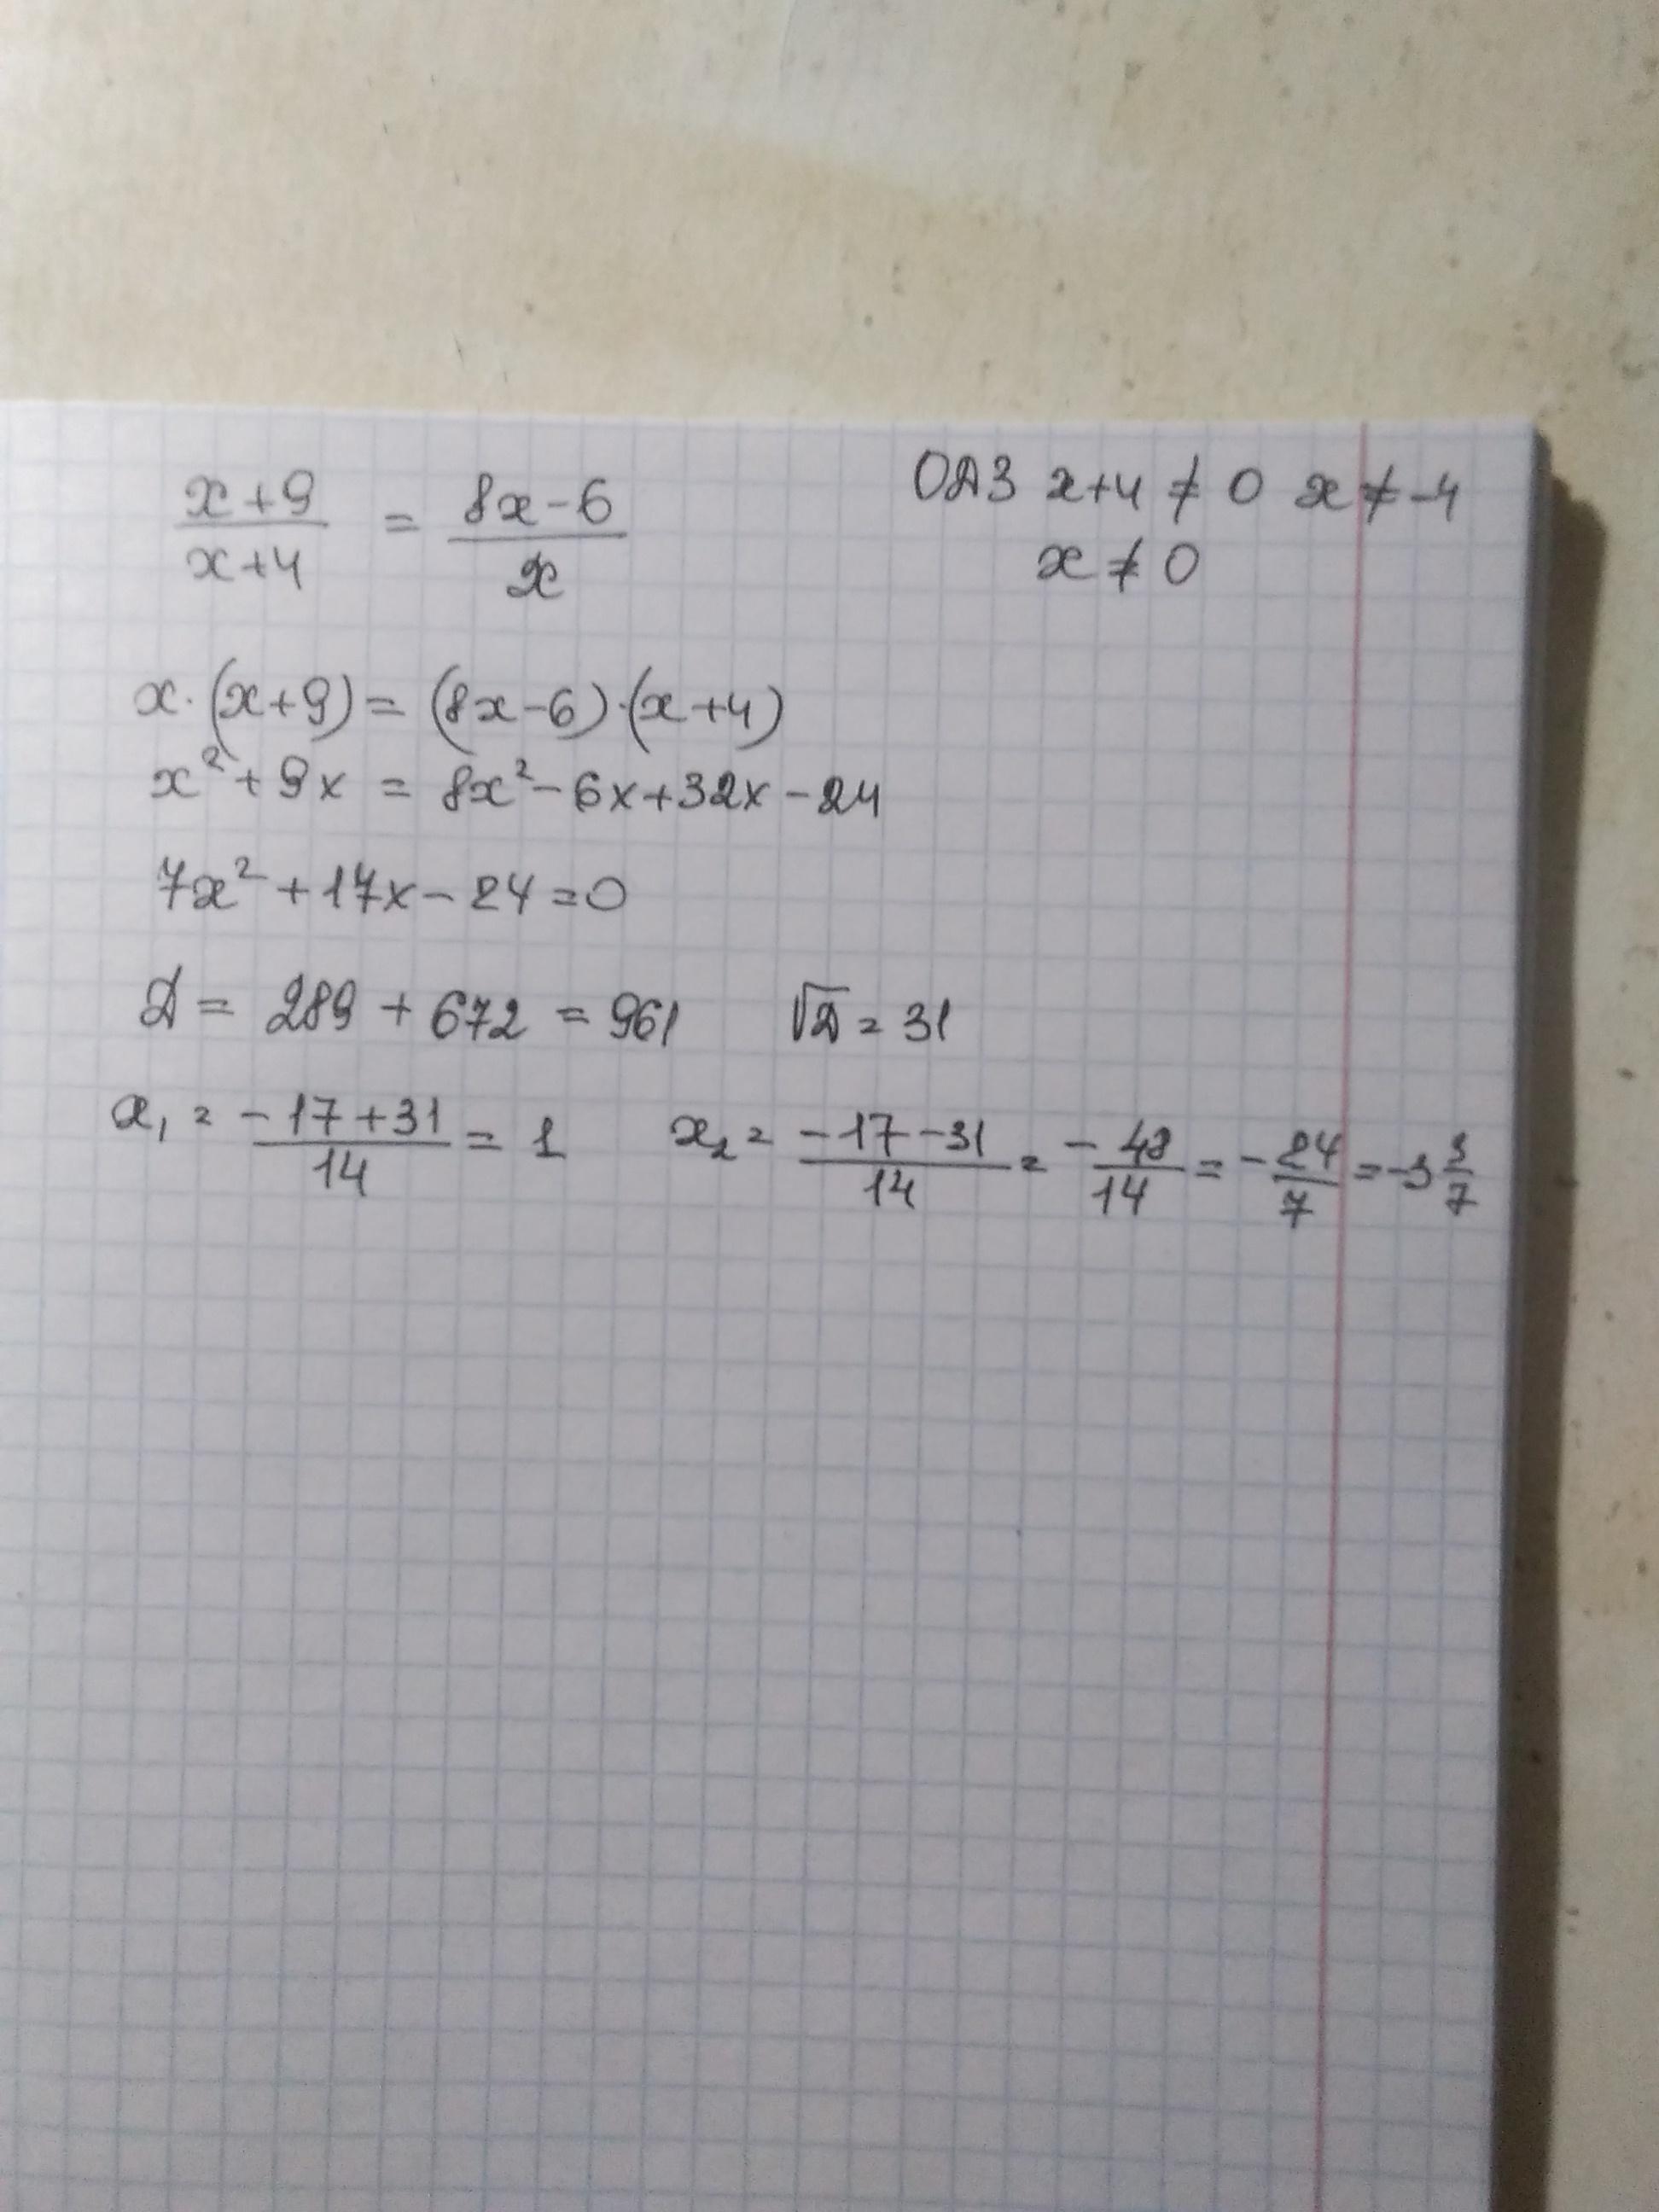 (x+9)/(x+4) = (8x-6)/x
ОДЗ x+4 ≠ 0 x ≠ -4
x ≠ 0
x·(x+9) = (8x-6)·(x+4)
x² + 9x = 8x² - 6x + 32x - 24
7x² + 17x - 24 = 0
D = 289 + 672 = 961 √D = 31
x₁ = (-17+31)/14 = 1 x₂ = (-17-31)/14 = -48/14 = -24/7 = -3 3/7